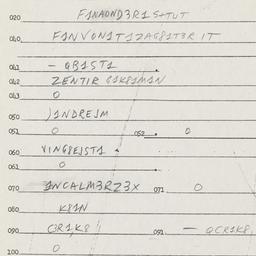 020 F1NAOND3R1 S+TUT
040 F1NVON1T1ZAG81T3R IT
041 - QB1ST1
042 ZENTIR G1K81M1N
043 0
050 )1NDREJM
051 0 052 0
060 VING8EJST1
061 0
070 1NCALM3RZ3X 071 0
080 K81N
090 091 - QCR1K8
100 0